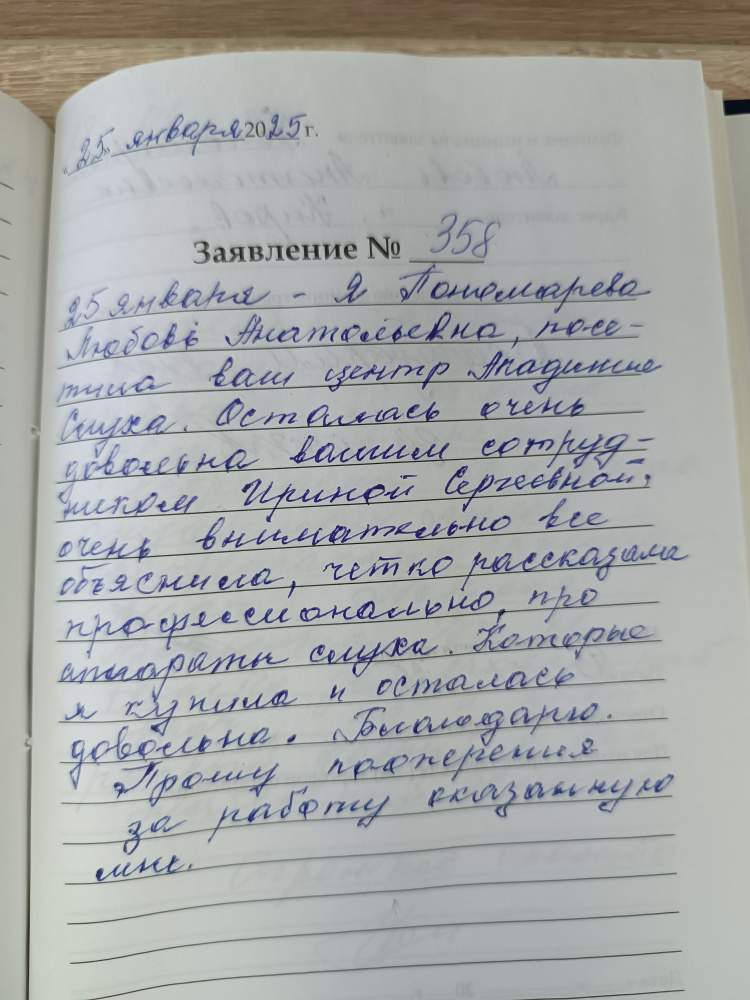 "25" января 2025 г.
Заявление № 358
25 января - Я Пономарева
Любовь Анатольевна, посе-
тила ваш центр Академие
Слуха. Осталась очень
довольна вашим сотруд-
ником Ириной Сергеевной,
очень внимательно все
объяснила, четко рассказала
профессионально, про
аппараты слуха. Которые
я купила и осталась
довольна. Благодарю.
Прошу поожерения
за работу оказанную
мне.